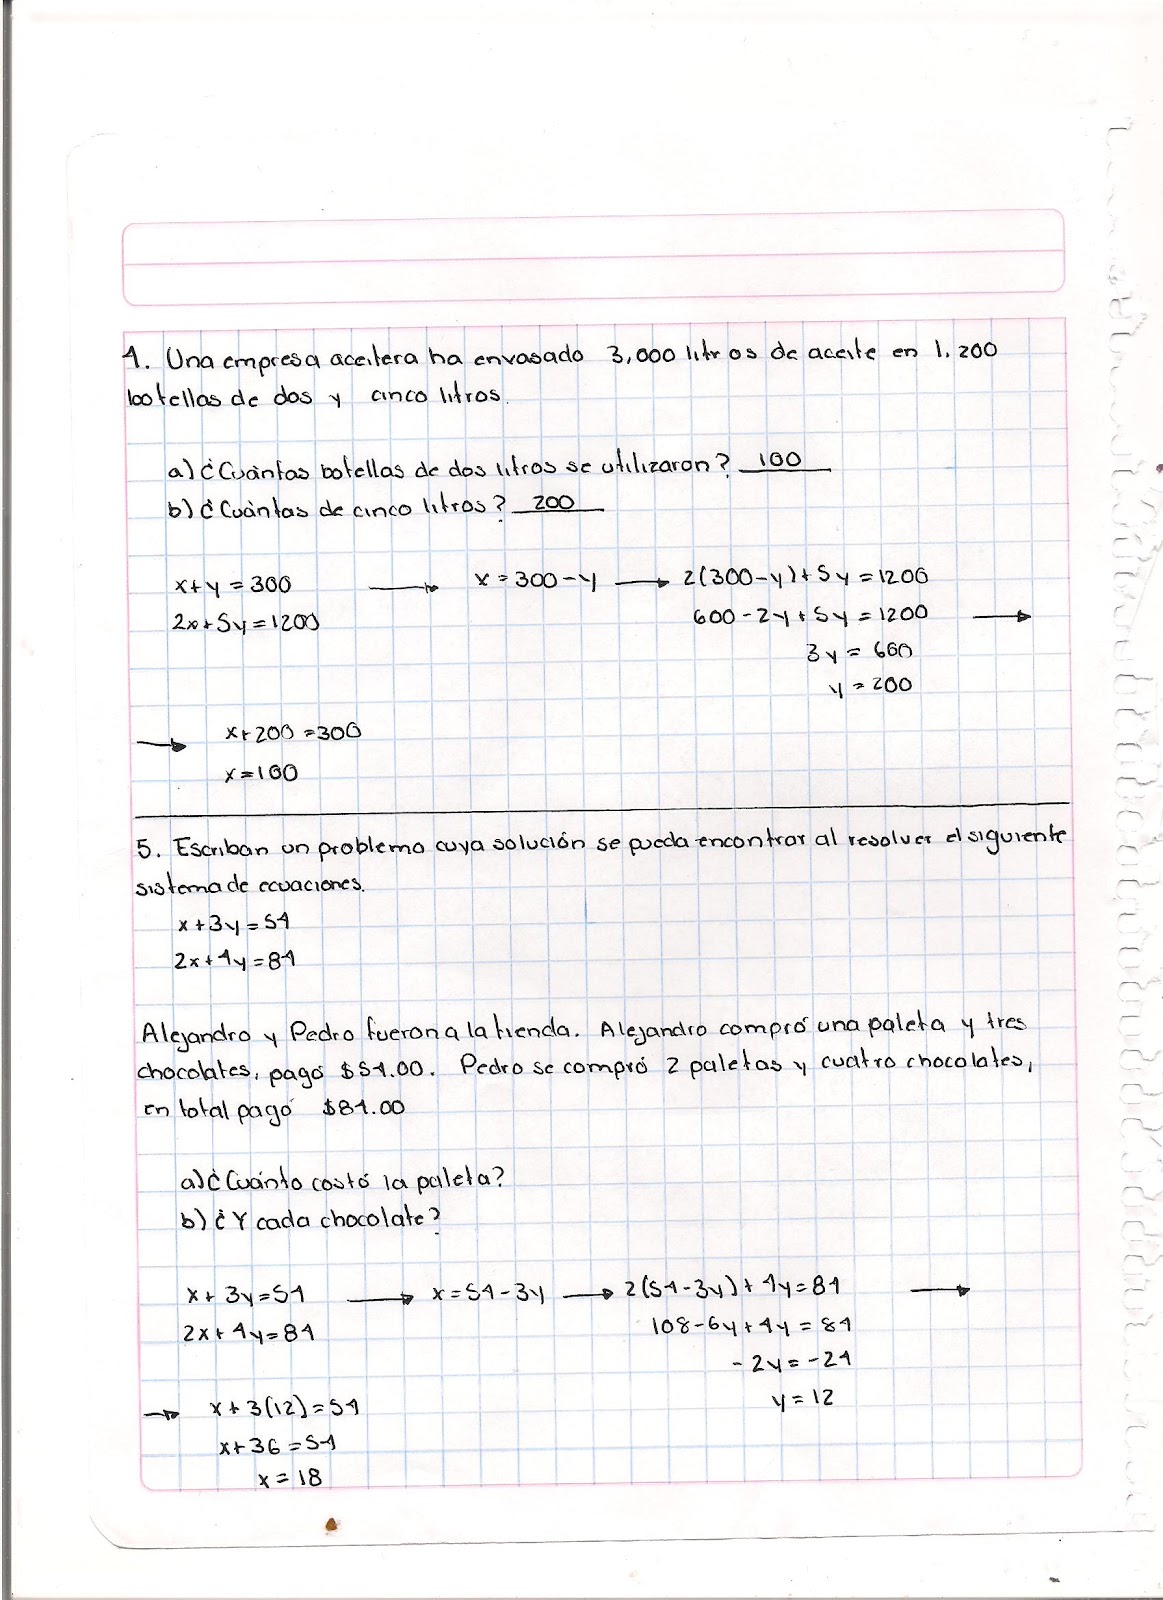 4. Una empresa aceitera ha envasado 3,000 litros de aceite en 1,200
botellas de dos y cinco litros.
a) ¿Cuántas botellas de dos litros se utilizaron? 100
b) ¿Cuántas de cinco litros? 200
x+y=300 → x=300-y → 2(300-y)+5y=1200
2x+5y=1200 600-2y+5y=1200 →
3y=600
y=200
→ x+200=300
x=100
5. Escriban un problema cuya solución se pueda encontrar al resolver el siguiente
sistema de ecuaciones.
x+3y=54
2x+4y=84
Alejandro y Pedro fueron a la tienda. Alejandro compró una paleta y tres
chocolates, pagó $54.00. Pedro se compró 2 paletas y cuatro chocolates,
en total pagó $84.00
a) ¿Cuánto costó la paleta?
b) ¿Y cada chocolate?
x+3y=54 → x=54-3y → 2(54-3y)+4y=84 →
2x+4y=84 108-6y+4y=84
-2y=-24
y=12
→ x+3(12)=54
x+36=54
x=18